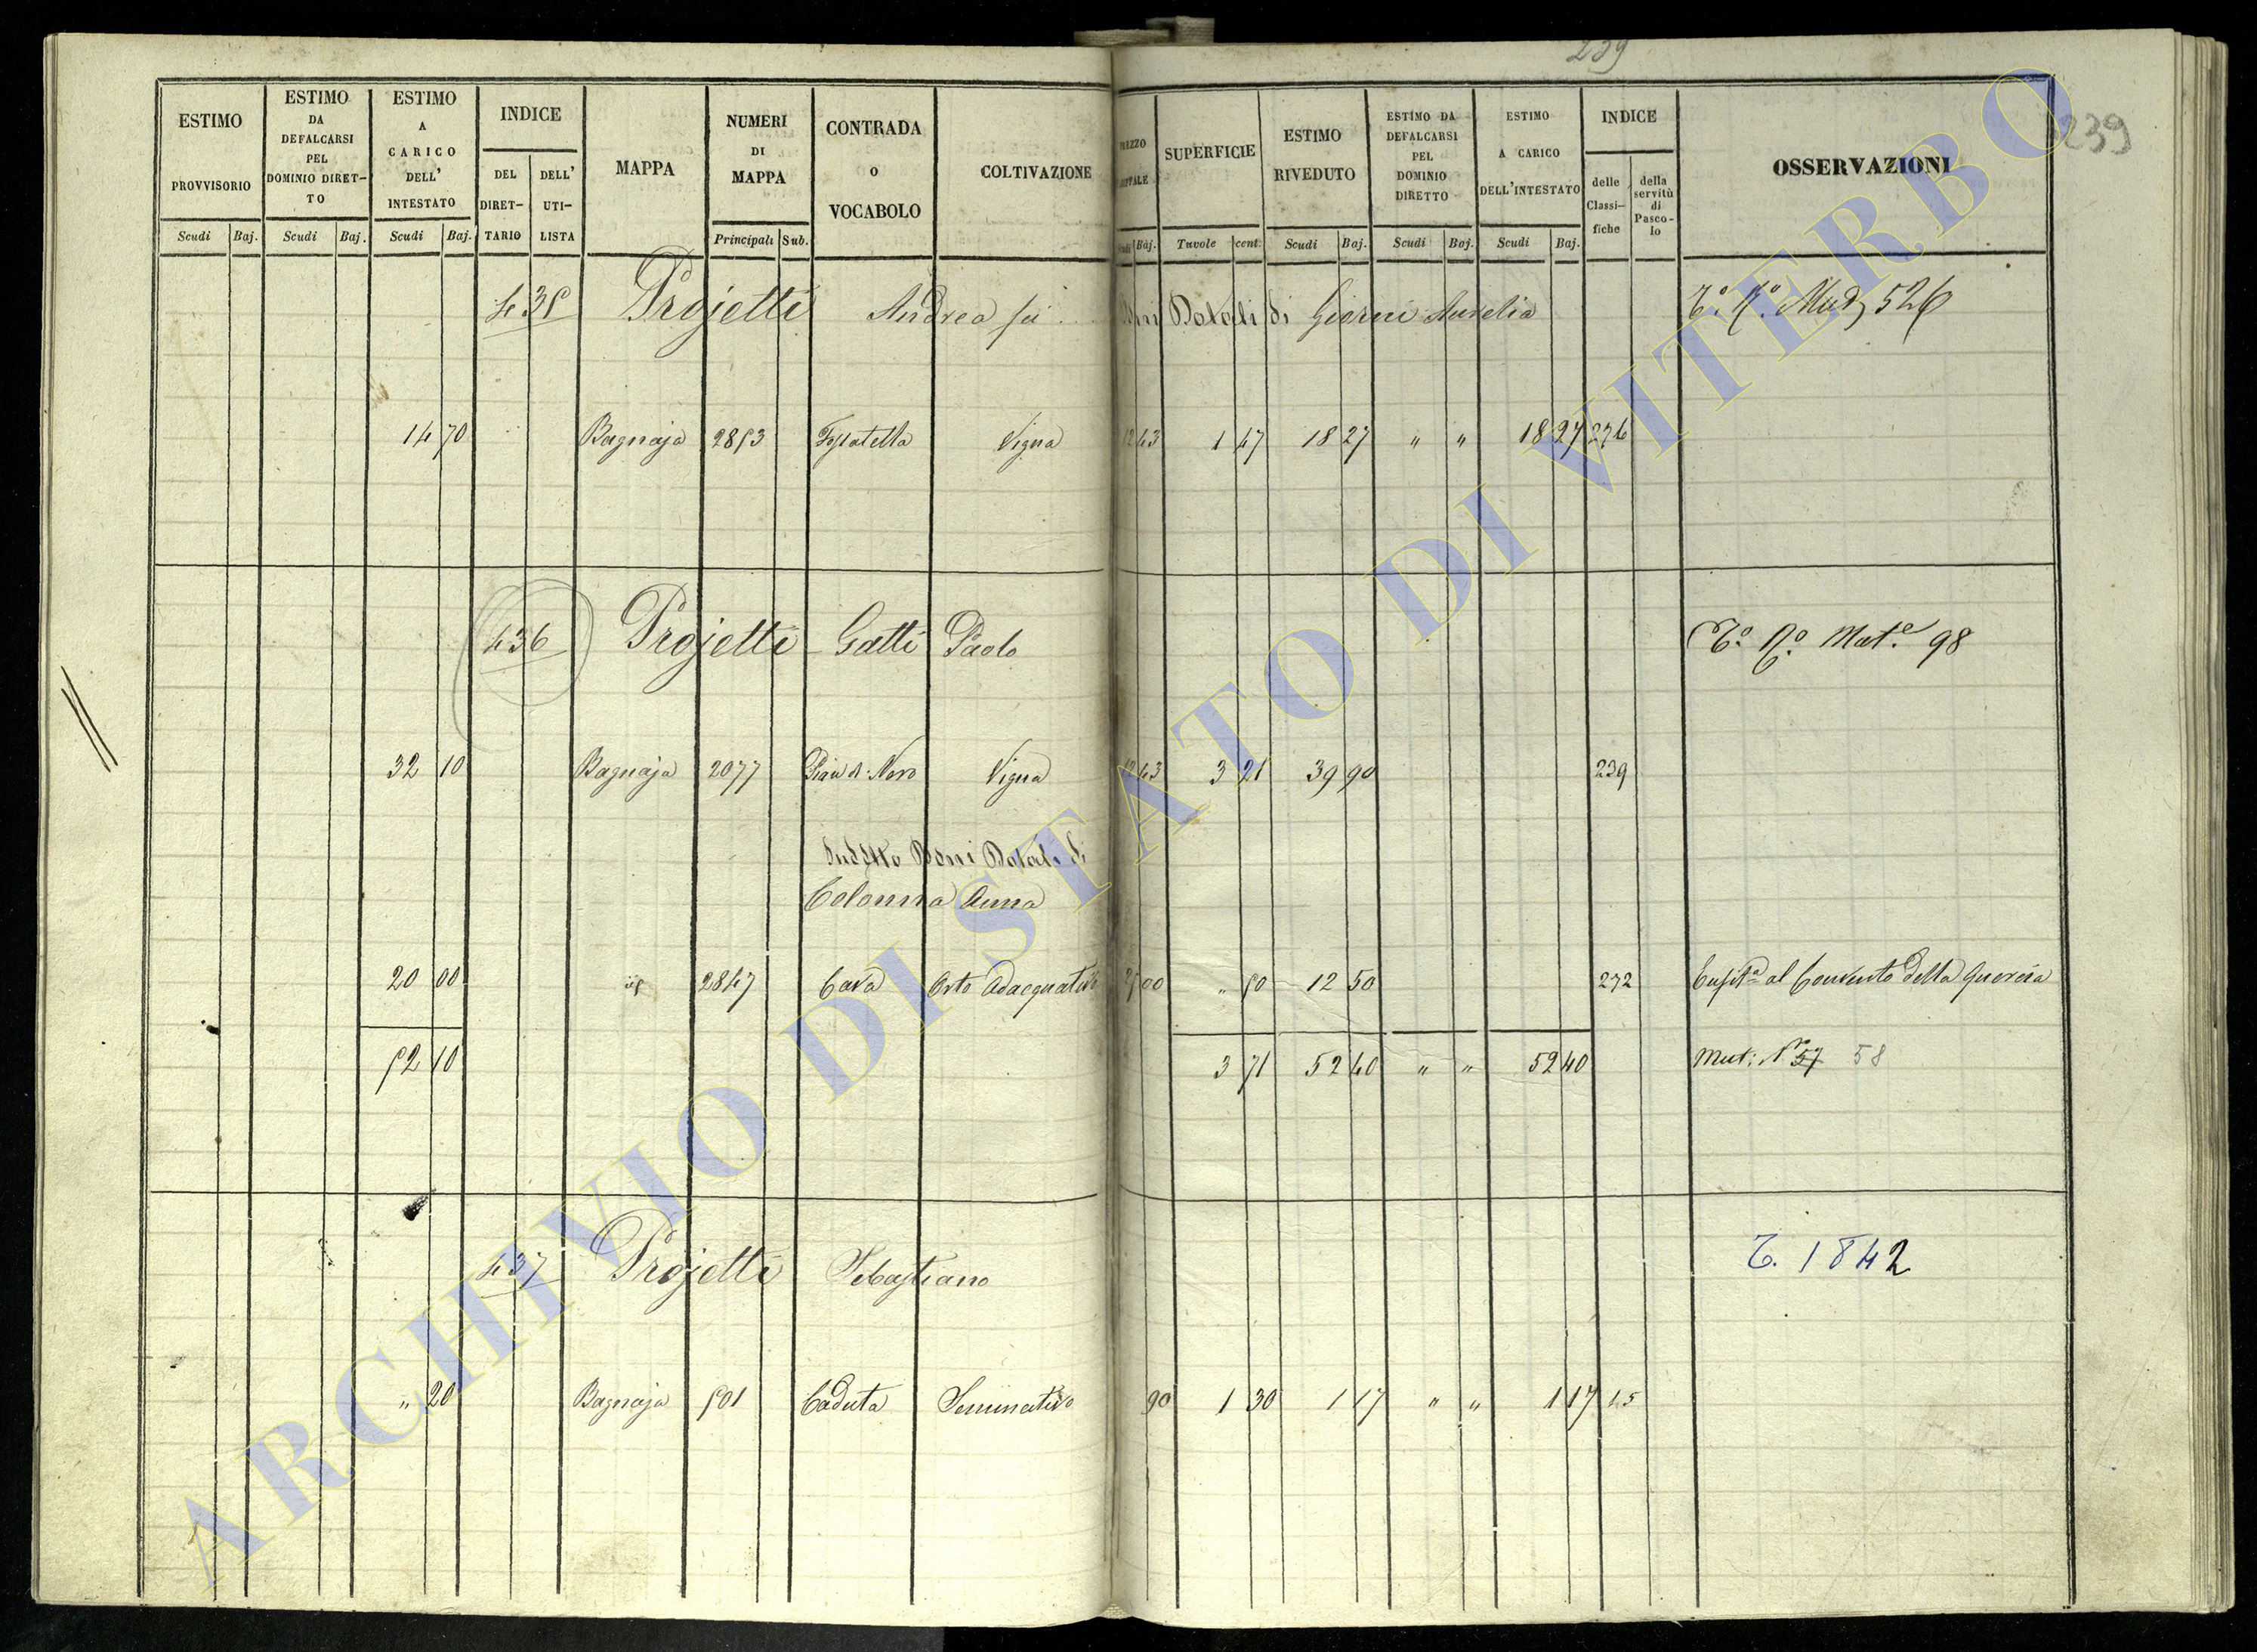 239
239
ESTIMO PROVVISORIO
ESTIMO DA DEFALCARSI PEL DOMINIO DIRET-TO
ESTIMO A CARICO DELL' INTESTATO
INDICE
DEL DIRET-TARIO
DELL' UTI-LISTA
MAPPA
NUMERI DI MAPPA
CONTRADA O VOCABOLO
COLTIVAZIONE
SUPERFICIE
ESTIMO RIVEDUTO
ESTIMO DA DEFALCARSI PEL DOMINIO DIRETTO
ESTIMO A CARICO DELL'INTESTATO
INDICE
delle Classi-fiche
della servitù di Pasco-lo
OSSERVAZIONI
Scudi Baj. Scudi Baj. Scudi Baj. Principali Sub. Baj. Tavole cent. Scudi Baj. Scudi Baj. Scudi Baj.
435 Projetti Andrea Beni Dotali di Giorni Aurelia 526
14 70 Bagnaja 2853 Vigna 12 43 1 47 18 27 " " 18 27 276
436 Projetti Gatti Paolo Mat.e 98
32 10 Bagnaja 2077 Vigna 12 43 3 21 39 90 239
Suddetto Beni Dotali di
Colonna Anna
20 00 2847 Cava Orto Adacquativo 25 00 " 50 12 50 272 al Convento della Quercia
52 10 3 71 52 40 " " 52 40 Mut: N.° 57 58
437 Projetti Sebastiano T. 1842
" 20 Bagnaja 501 Caduta Seminativo 90 1 30 1 17 " " 1 17 15
ARCHIVIO DI STATO DI VITERBO